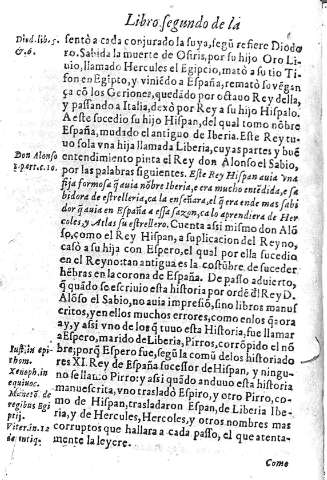 Libro segundo de la
Diod. lib. 5.
& 6.
sentò a cada conjurado la suya, segũ refiere Diodo
ro. Sabida la muerte de Osiris, por su hijo Oro Li
uio, llamado Hercules el Egipcio, matò a su tio Ti-
fon en Egipto, y viniẽdo a España, rematò su vẽgan
ça cõ los Geriones, quedado por octauo Rey della,
y passando a Italia, dexò por Rey a su hijo Hispalo.
A este sucedio su hijo Hispan, del qual tomò nõbre
España, mudado el antiguo de Iberia. Este Rey tu-
uo sola vna hija llamada Liberia, cuyas partes y buẽ
Don Alonso
1. part. c. 10.
entendimiento pinta el Rey don Alonso el Sabio,
por las palabras siguientes. Este Rey Hispan auia vna
fija formosa q̃ auia nõbre Iberia, era mucho entẽdida, e sa
bidora de estrelleria, ca la enseñara, el q̃ era ende mas sabi
dor q̃ auia en España a essa sazon, ca lo aprendiera de Her
coles, y Atlas su estrellero. Cuenta assi mismo don Alõ
so, como el Rey Hispan, a suplicacion del Reyno,
casò a su hija con Espero, el qual por ella sucedio
en el Reyno: tan antigua es la costũbre de suceder
hẽbras en la corona de España. De passo aduierto,
q̃ quãdo se escriuio esta historia por ordẽ d'l Rey D.
Alõso el Sabio, no auia impresiõ, sino libros manus
critos, y en ellos muchos errores, como en los q̃ aora
ay, y assi vno de los q̃ tuuo esta Historia, fue llamar
a Espero, marido de Liberia, Pirros, corrõpido el nõ
Iust. in epi
thom.
bre; porq̃ Espero fue, segũ la comũ de los historiado
res XI. Rey de España sucessor de Hispan, y ningu-
Xenoph. in
equiuoc.
no se llamò Pirro: y assi quãdo anduuo esta historia
manuescrita, vno trasladò Espiro, y otro Pirro, co-
Manetõ. de
regibus Egi
ptij.
mo de Hispan, trasladaron Espan, de Liberia Ibe-
ria, y de Hercules, Hercoles, y otros nombres mas
Viter. in. 12
de antiq.
corruptos que hallara a cada passo, el que atenta-
mente la leyere.
Como